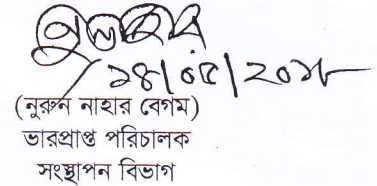 ১৪/০৫/২০১৮
(নুরুন নাহার বেগম)
ভারপ্রাপ্ত পরিচালক
সংস্থাপন বিভাগ